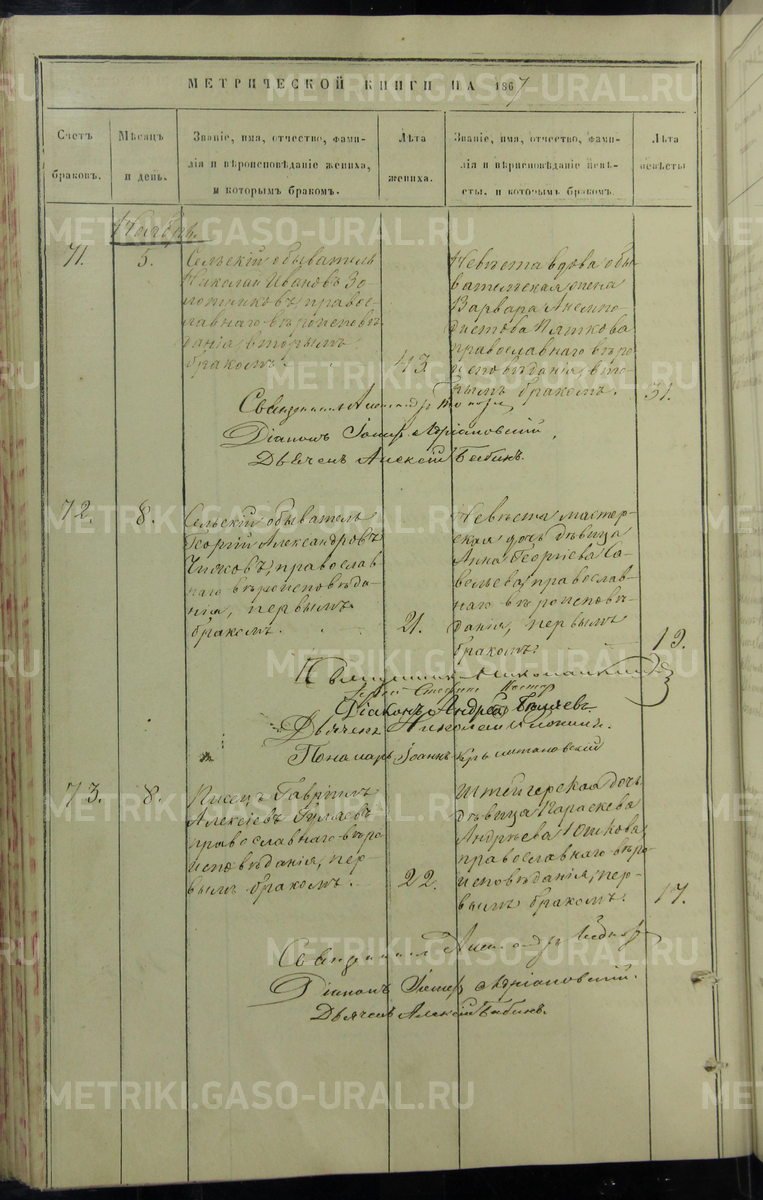 МЕТРИЧЕСКОЙ КНИГИ НА 1867
Счетъ браковъ.
Мѣсяцъ и день.
Званіе, имя, отчество, фами-
лія и вѣроисповѣданіе жениха,
и которымъ бракомъ.
Лѣта жениха.
Званіе, имя, отчество, фами-
лія и вѣрисповѣданіе невѣ-
сты, и которымъ бракомъ.
Лѣта невѣсты
Ноябрь.
71.
5.
Сельскій обыватель
Николай Ивановъ Зо-
лотниковъ, правос-
лавнаго вѣроисповѣ
данія, вторымъ
бракомъ.
43.
Невѣста вдова обы-
вательская жена
Варвара
Пяткова
православнаго вѣро
исповѣданія, вто-
рымъ бракомъ.
31.
Священникъ
Діаконъ
Дьячекъ Алексій Бабинъ.
72.
8.
Сельскій обыватель
Георгій Александровъ
Чижовъ, православ
наго вѣроисповѣда-
нія, первымъ
бракомъ.
21.
Невѣста мастер-
ская дочь дѣвица
Анна Георгіева Са-
вельева, православ-
наго вѣроисповѣ-
данія, первымъ
бракомъ.
19.
Діаконъ Андрей
Дьячекъ Николай
Пономарь Іоаннъ
73.
8.
Писецъ Гавріилъ
Алексіевъ Гуляевъ
православнаго вѣро
исповѣданія, пер-
вымъ бракомъ.
22.
Штейгерская дочь
дѣвица Параскева
Андрѣева Юшкова,
православнаго вѣро
исповѣданія, пер-
вымъ бракомъ.
17.
Священникъ
Діаконъ
Дьячекъ Алексій Бабинъ.
METRIKI.GASO-URAL.RU